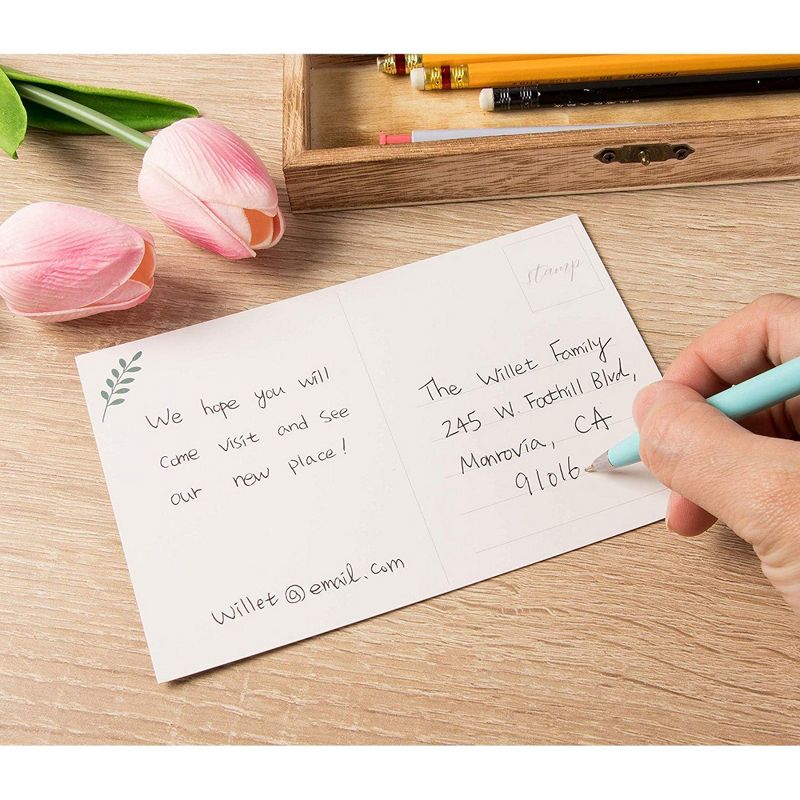 stamp
We hope you will
come visit and see
our new place!
Willet@email.com
The Willet Family
245 W. Foothill Blvd,
Monrovia, CA
91016